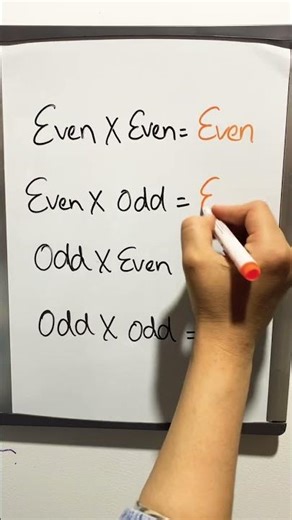 Even X Even = Even
Even X Odd = E
Odd X Even
Odd X Odd =